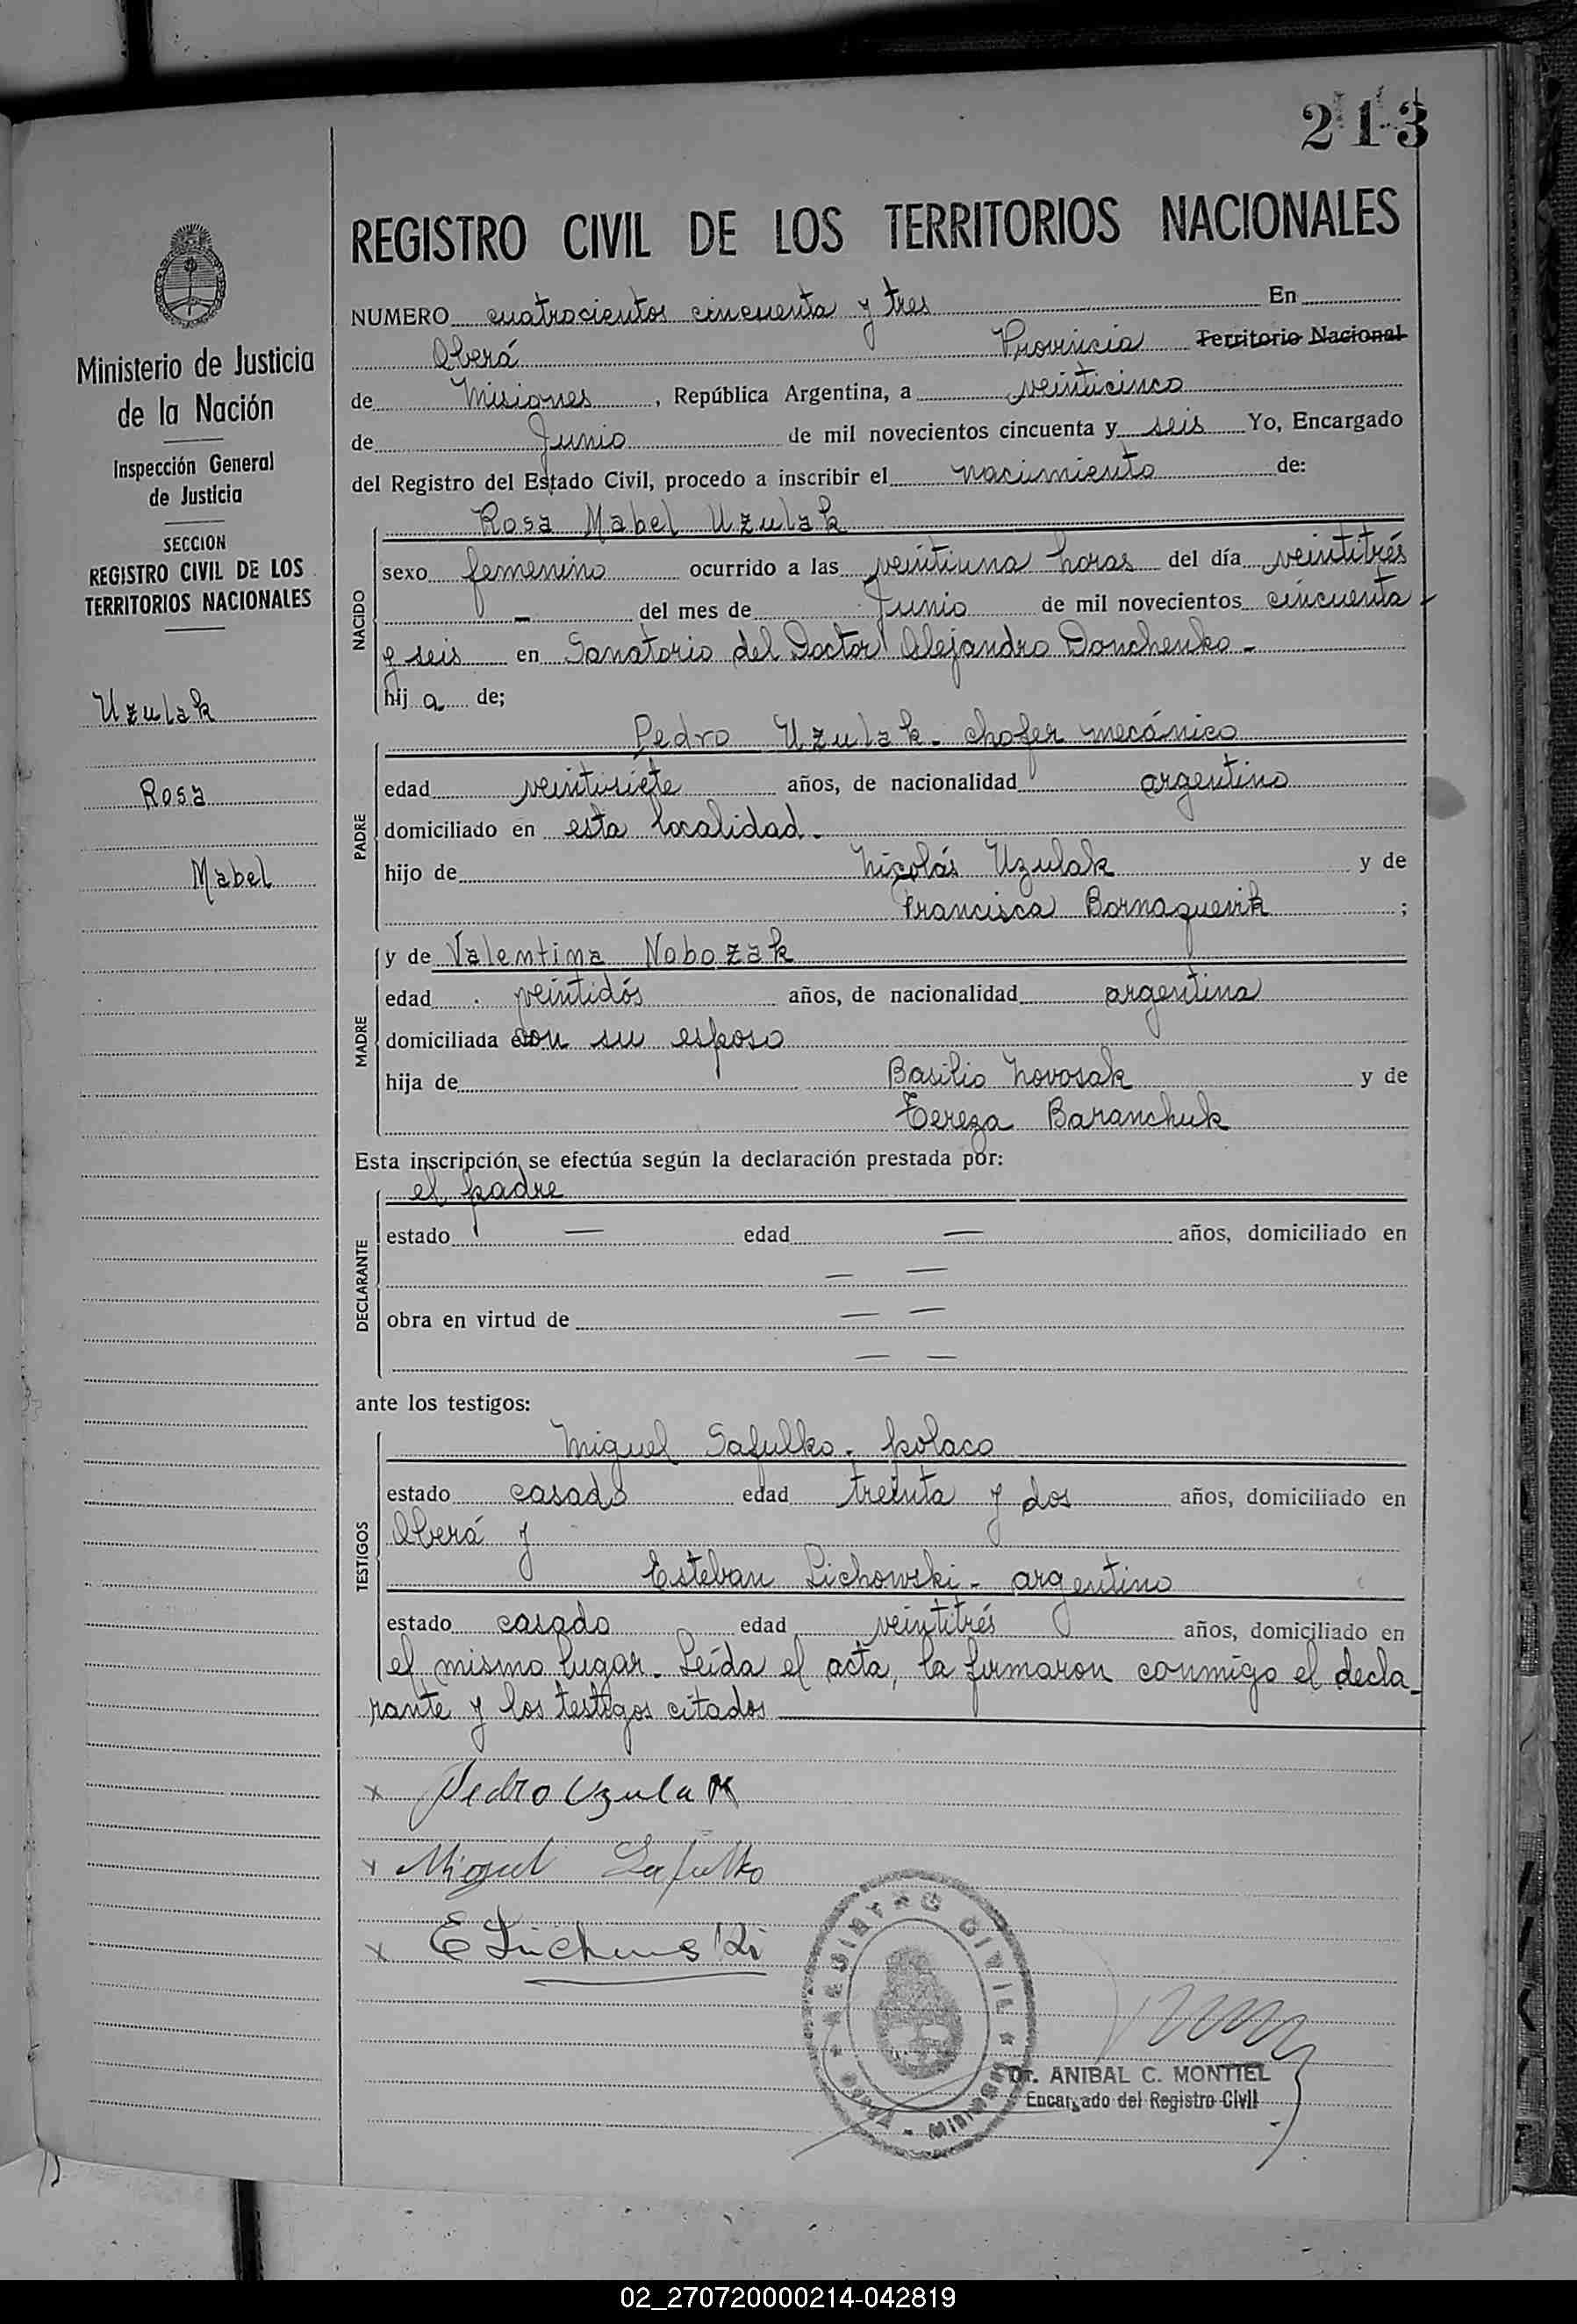 213
REGISTRO CIVIL DE LOS TERRITORIOS NACIONALES
Ministerio de Justicia
de la Nación
Inspección General
de Justicia
SECCION
REGISTRO CIVIL DE LOS
TERRITORIOS NACIONALES
Uzulak
Rosa
Mabel
NUMERO cuatrocientos cincuenta y tres En
Oberá Provincia Territorio Nacional
de Misiones, República Argentina, a veinticinco
de Junio de mil novecientos cincuenta y seis Yo, Encargado
del Registro del Estado Civil, procedo a inscribir el nacimiento de:
NACIDO
Rosa Mabel Uzulak
sexo femenino ocurrido a las veintiuna horas del día veintitrés
- del mes de Junio de mil novecientos cincuenta
y seis en Sanatorio del Doctor Alejandro Donchenko -
hij a de;
PADRE
Pedro Uzulak - chofer mecánico
edad veintisiete años, de nacionalidad argentino
domiciliado en esta localidad -
hijo de Nicolás Uzulak y de
Francisca Bornaguevik ;
MADRE
y de Valentina Nobozak
edad veintidós años, de nacionalidad argentina
domiciliada con su esposo
hija de Basilio Novosak y de
Tereza Baranchuk
Esta inscripción se efectúa según la declaración prestada por:
DECLARANTE
el padre
estado — edad — años, domiciliado en
— —
obra en virtud de — —
— —
ante los testigos:
TESTIGOS
Miguel Safulko - polaco
estado casado edad treinta y dos años, domiciliado en
Oberá y
Esteban Lichowski - argentino
estado casado edad veintitrés años, domiciliado en
el mismo lugar - Leída el acta, la firmaron conmigo el decla-
rante y los testigos citados
x Pedro Uzulak
x Miguel Safulko
x E Lichowski
REGISTRO CIVIL * MISIONES -
Dr. ANIBAL C. MONTIEL
Encargado del Registro Civil
02_270720000214-042819